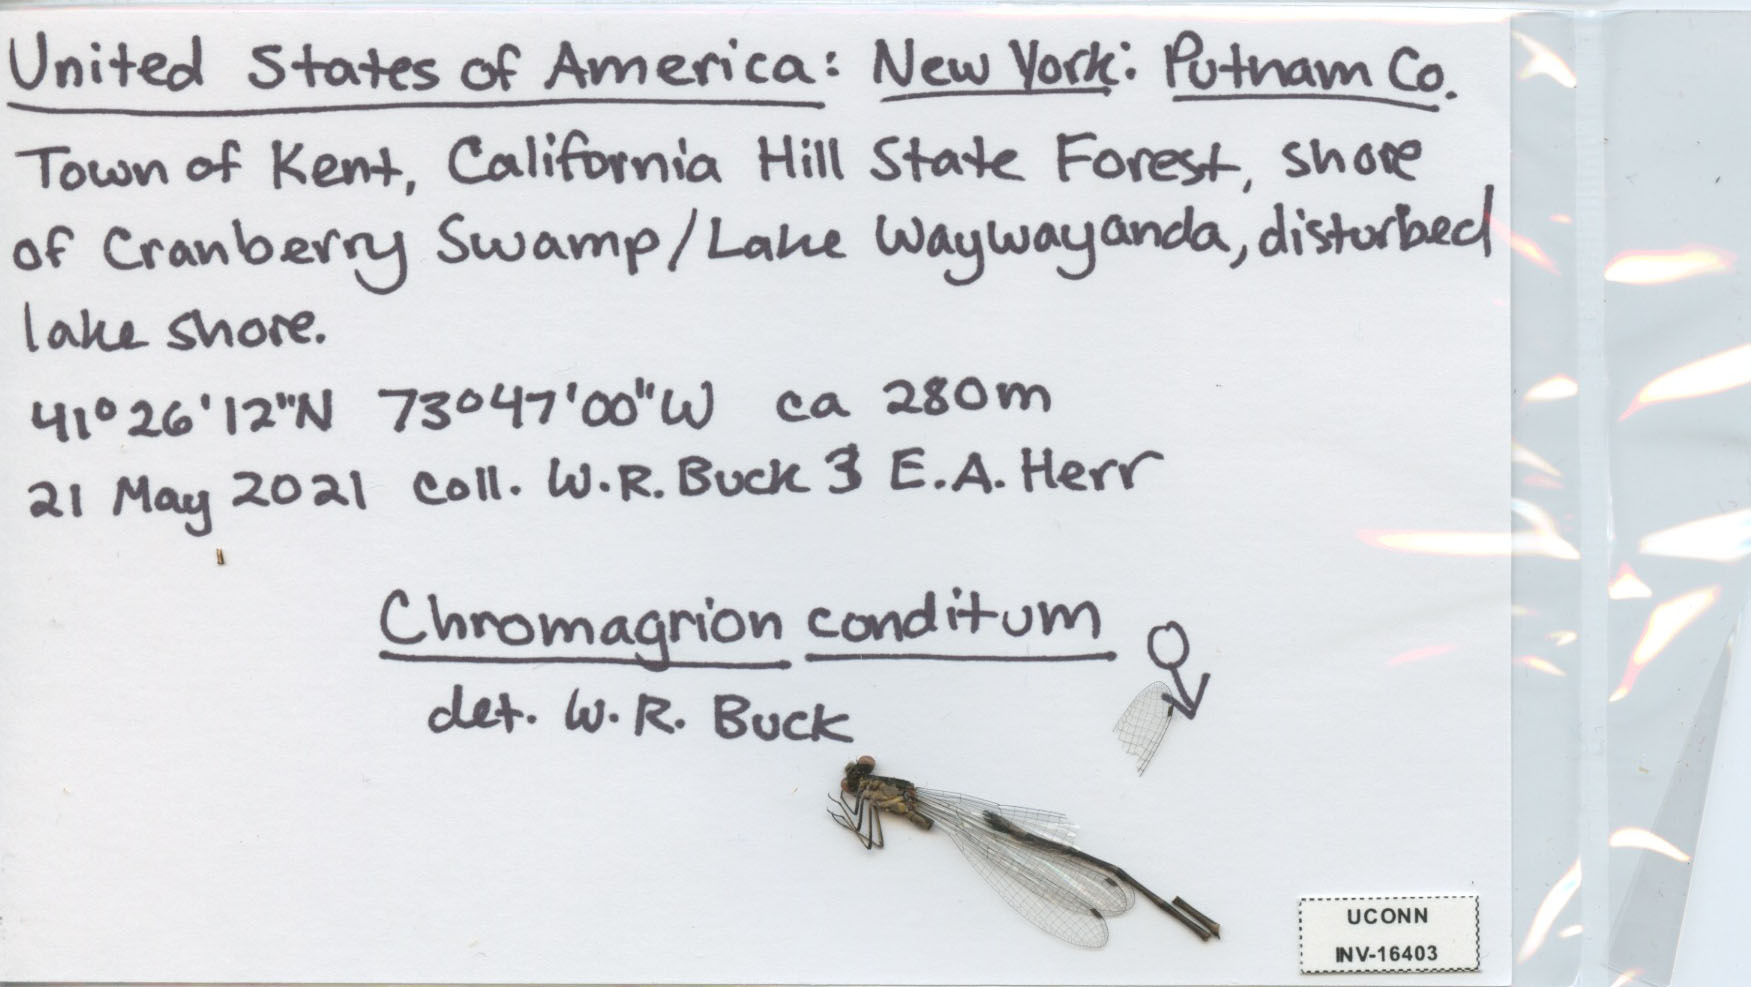 United States of America: New York: Putnam Co.
Town of Kent, California Hill State Forest, shore
of Cranberry Swamp/Lake Waywayanda, disturbed
lake shore.
41°26'12"N 73°47'00"W ca 280m
21 May 2021 coll. W.R. Buck & E.A. Herr
Chromagrion conditum
det. W. R. Buck
UCONN
INV-16403